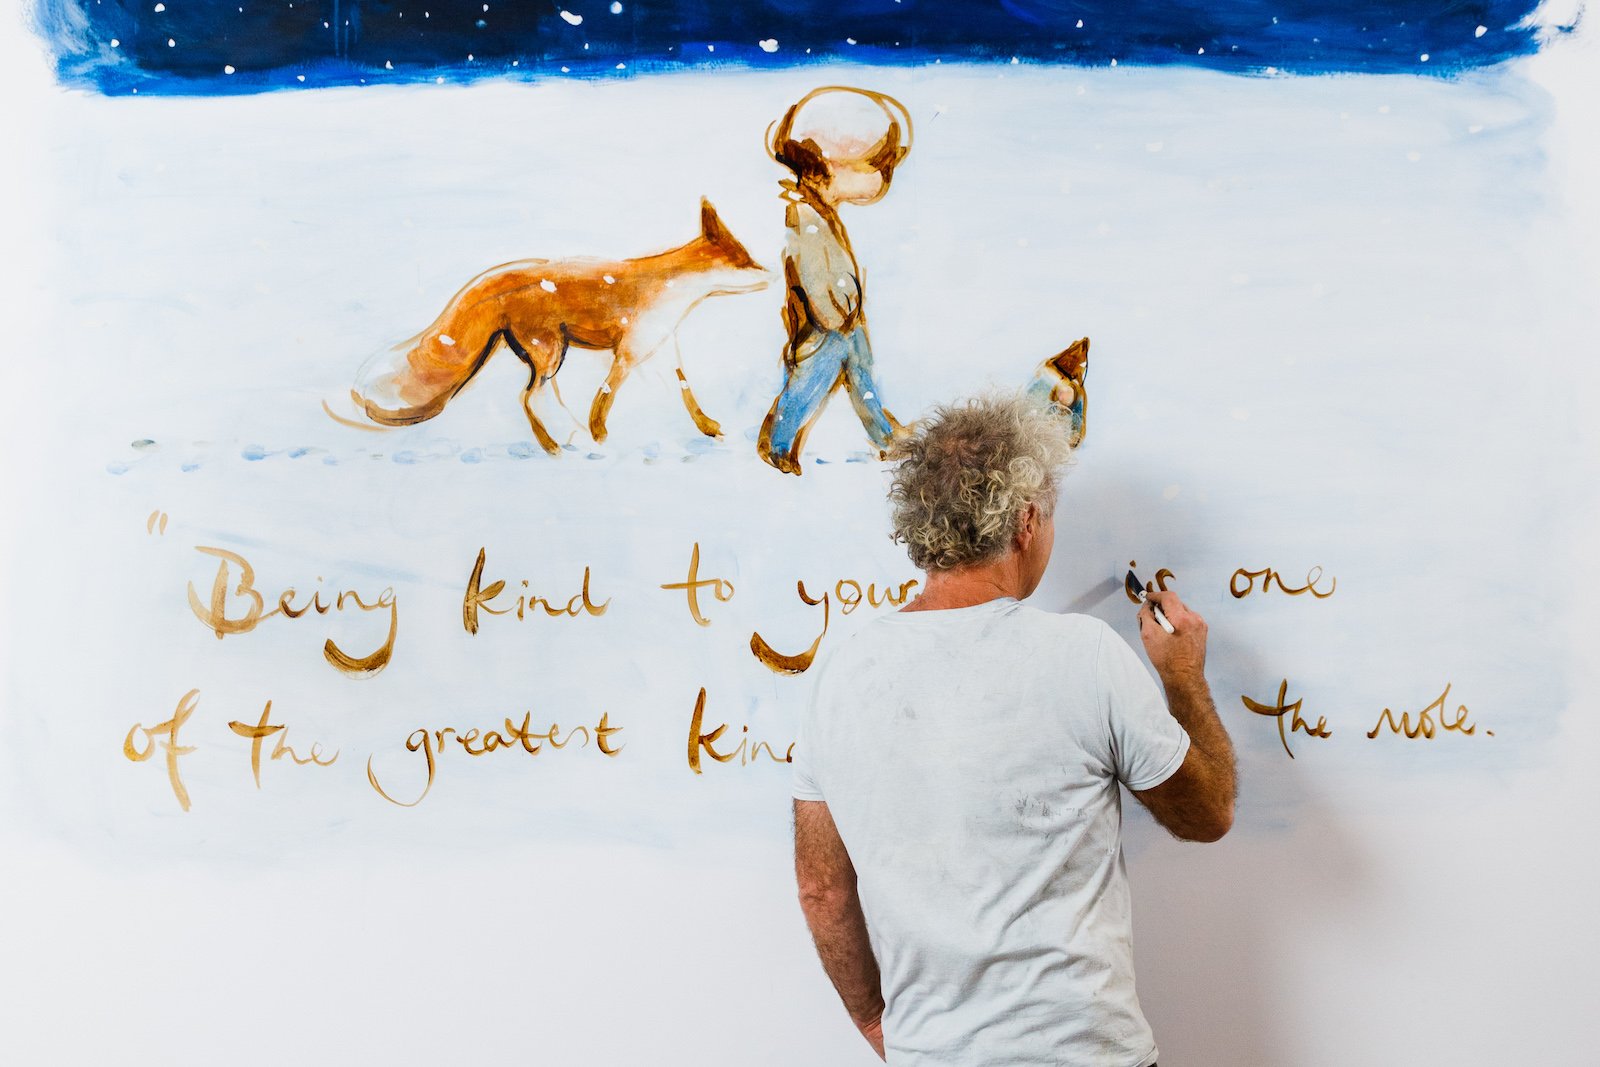 "Being kind to your is one
of the greatest kind the mole.